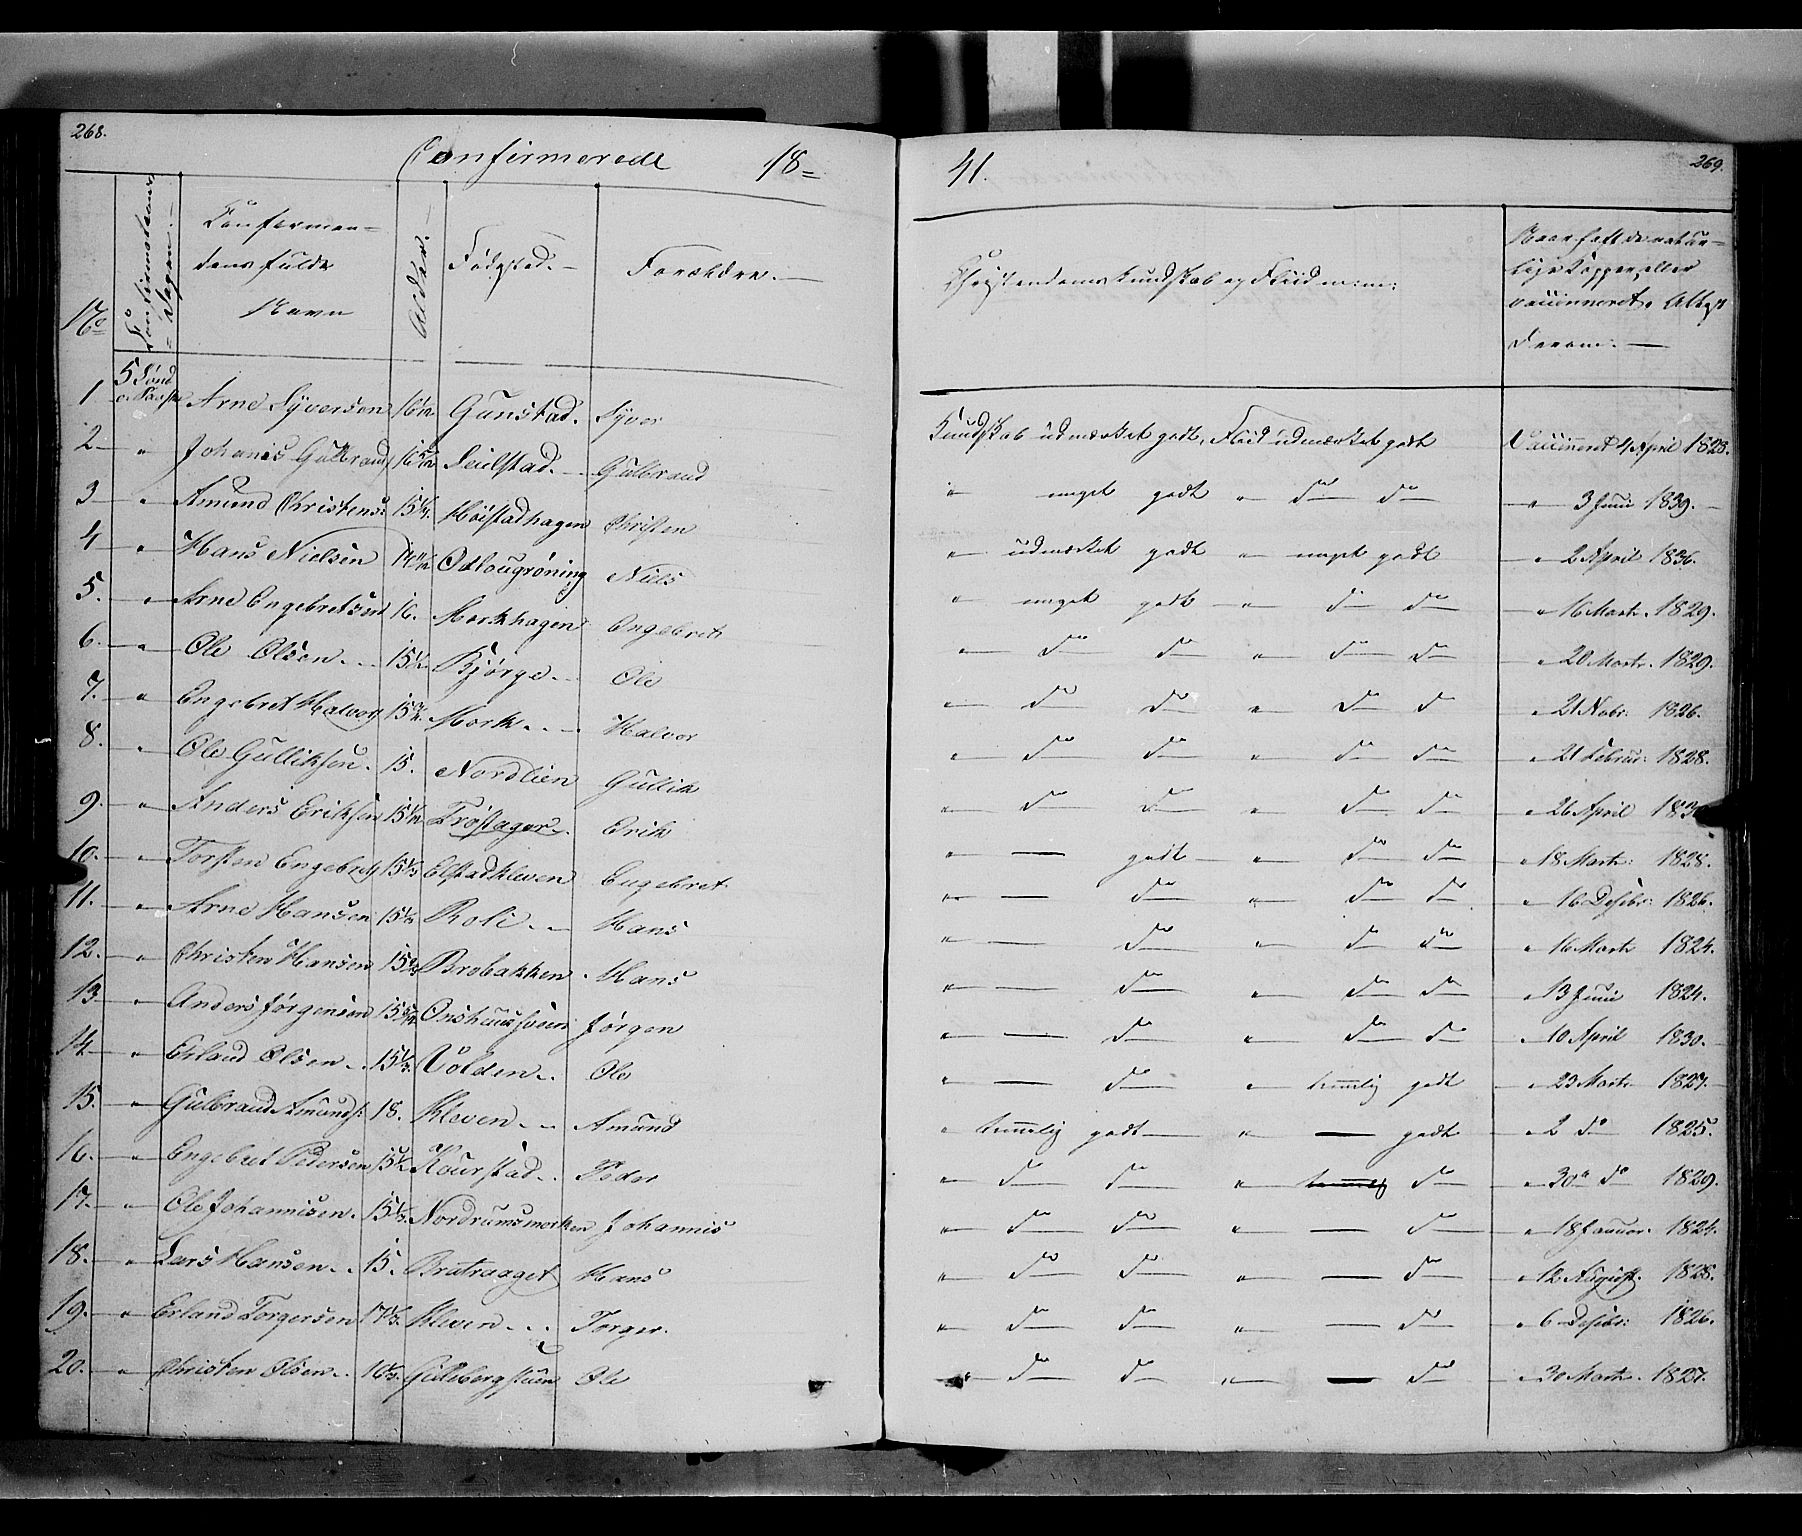 268.
Confirmerede 18=
41.
269.
No
Confirmations Dagen.
Confirman=
dens fulde
Navn
Alder.
Födested.
Forældre.
Christendoms Kundskab og Fliid m: m:
Om haft de natur=
lige Kopper, eller
vaccineret, Attest
derom.
1 5 Sönd e. Paaske Arne Syversen 16 1/12 Gunstad. Syver Kundskab udmærket godt, Fliid udmærket godt Vaccineret 4 April 1828.
2 " Johanis Gulbrands 16 Seilstad. Gulbrand " meget godt " do do " 3 Juni 1839.
3 " Amund Christens: 15 1/4. Höistadhagen Christen " udmærket godt " meget godt " 2 April 1836.
4 " Hans Nielsen Odlougröning Niels " meget godt " do do " 16 Marts 1829.
5. " Arne Engebretsen 16. Morkhagen Engebret " do do " do do " 28 Marts. 1829.
6. " Ole Olsen. 15 1/2 Bjørge. Ole " do do " do do " 21 Nobr: 1826.
7. " Engebret Halvors 15 Mork. Halvor " do do " do do " 21 Februar: 1828.
8. " Ole Gulliksen. 15. Nordlien Gullik " do do " do do " 26 April
9. " Anders Eriksen 15 1/12 Trostager. Erik " — godt " do do " 18 Marts: 1828.
10. " Torsten Engebrets 15 1/3 Elstadkleven Engebret " — do " do do " 16 Desbr: 1826.
11. " Arne Hansen 15 1/2 Roli. Hans " — do " do do " 16 Marts 1824.
12. " Christen Hansen 15 Brobakken. Hans " — do " do do " 13 Juni 1824.
13 " Anders Jörgensen 15 Jörgen " — do " do do " 10 April 1830.
14. " Erland Olsen. 15 1/3. Volden. Ole " — do " temlig godt " 23 Marts 1827.
15. " Gulbrand Amunds: 18. Kleven. Amund " temlig godt " — godt " 2 do 1825.
16. " Engebret Pedersen 15 1/2 Peder " do do " temlig do " 30 do 1829.
17. " Ole Johannisen. 15 1/3. Nordrumsmorken Johannis " do do " — do " 18 Januar. 1824.
18. " Lars Hansen. 15. Brutraaget Hans " do do " — do " 12 August. 1828.
19. " Erland Torgersen 17 1/3. Kleven. Torger. " do do " — do " 6 Desbr: 1826.
20. " Christen Olsen. 16 1/3. Guldbergstuen Ole " do do " — do " 30 Marts. 1827.